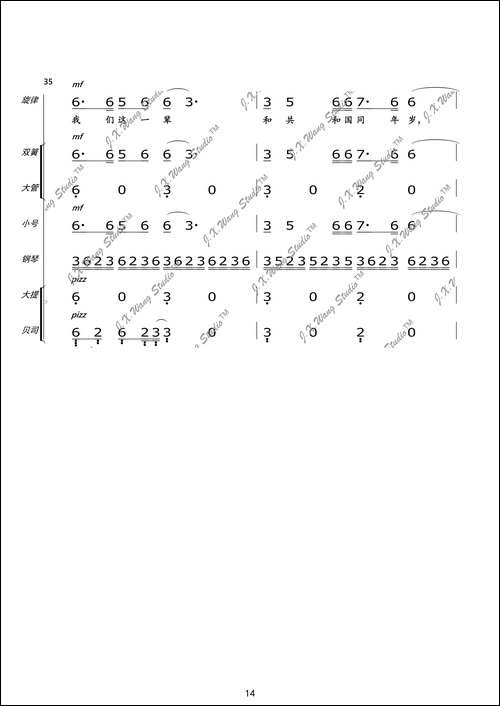 35
mf
旋律 6· 65 6 6 3· | 3 5 667· 6 6 |
我 们这 一 辈 和 共 和国同 年 岁,
mf
双簧 6· 65 6 6 3· | 3 5 667· 6 6 |
大管 6 0 3 0 | 3 0 2 0 |
mf
小号 6· 65 6 6 3· | 3 5 667· 6 6 |
钢琴 3623623636236236 | 3523523536236236 |
pizz
大提 6 0 3 0 | 3 0 2 0 |
pizz
贝司 6 2 6 233 0 | 3 0 2 0 |
J.X.Wang Studio™
14